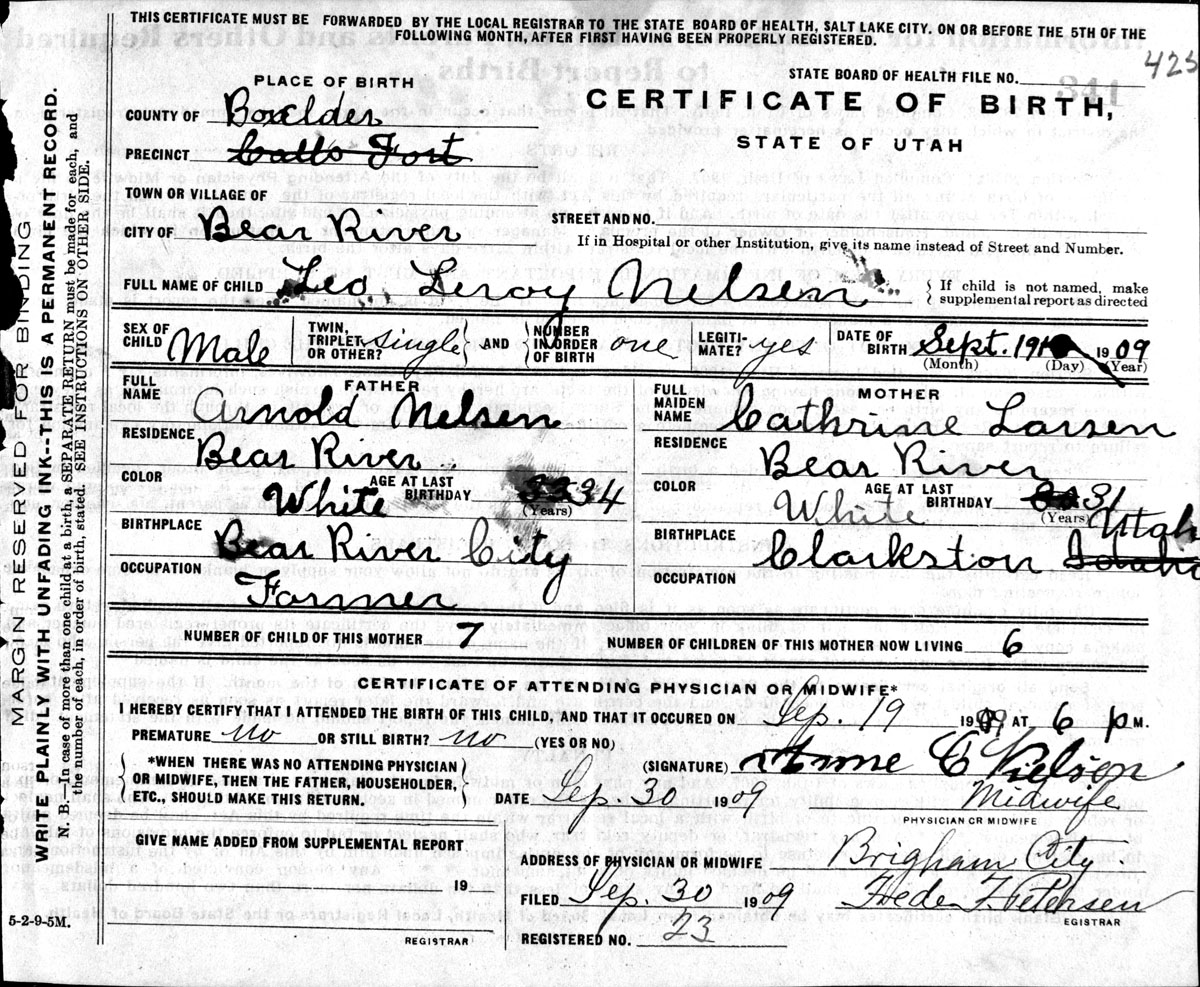 THIS CERTIFICATE MUST BE FORWARDED BY THE LOCAL REGISTRAR TO THE STATE BOARD OF HEALTH, SALT LAKE CITY. ON OR BEFORE THE 5TH OF THE
FOLLOWING MONTH, AFTER FIRST HAVING BEEN PROPERLY REGISTERED.
423
PLACE OF BIRTH
STATE BOARD OF HEALTH FILE NO.
COUNTY OF Boxelder
CERTIFICATE OF BIRTH,
PRECINCT Calls Fort
STATE OF UTAH
TOWN OR VILLAGE OF
STREET AND NO.
CITY OF Bear River
If in Hospital or other Institution, give its name instead of Street and Number.
FULL NAME OF CHILD Leo Leroy Nelsen
If child is not named, make
supplemental report as directed
SEX OF CHILD Male
TWIN, TRIPLET, OR OTHER? single
AND NUMBER IN ORDER OF BIRTH one
LEGITI-MATE? yes
DATE OF BIRTH Sept. 19 1909
(Month) (Day) (Year)
FATHER
FULL NAME Arnold Nelsen
RESIDENCE Bear River
COLOR White
AGE AT LAST BIRTHDAY 34
(Years)
BIRTHPLACE Bear River City
OCCUPATION Farmer
MOTHER
FULL MAIDEN NAME Cathrine Larsen
RESIDENCE Bear River
COLOR White
AGE AT LAST BIRTHDAY 31
(Years)
BIRTHPLACE Clarkston Idaho Utah
OCCUPATION
NUMBER OF CHILD OF THIS MOTHER 7
NUMBER OF CHILDREN OF THIS MOTHER NOW LIVING 6
CERTIFICATE OF ATTENDING PHYSICIAN OR MIDWIFE*
I HEREBY CERTIFY THAT I ATTENDED THE BIRTH OF THIS CHILD, AND THAT IT OCCURED ON Sep. 19 1909 AT 6 P M.
PREMATURE no OR STILL BIRTH? no (YES OR NO)
*WHEN THERE WAS NO ATTENDING PHYSICIAN
OR MIDWIFE, THEN THE FATHER, HOUSEHOLDER,
ETC., SHOULD MAKE THIS RETURN.
(SIGNATURE) Anne C Nielson
DATE Sep 30 1909 Midwife
PHYSICIAN OR MIDWIFE
GIVE NAME ADDED FROM SUPPLEMENTAL REPORT
19
REGISTRAR
ADDRESS OF PHYSICIAN OR MIDWIFE Brigham City
FILED Sep. 30 1909 Petersen
REGISTRAR
REGISTERED NO. 23
5-2-9-5M.
MARGIN RESERVED FOR BINDING
WRITE PLAINLY WITH UNFADING INK--THIS IS A PERMANENT RECORD.
N. B.—In case of more than one child at a birth, a SEPARATE RETURN must be made for each, and
the number of each, in order of birth, stated. SEE INSTRUCTIONS ON OTHER SIDE.